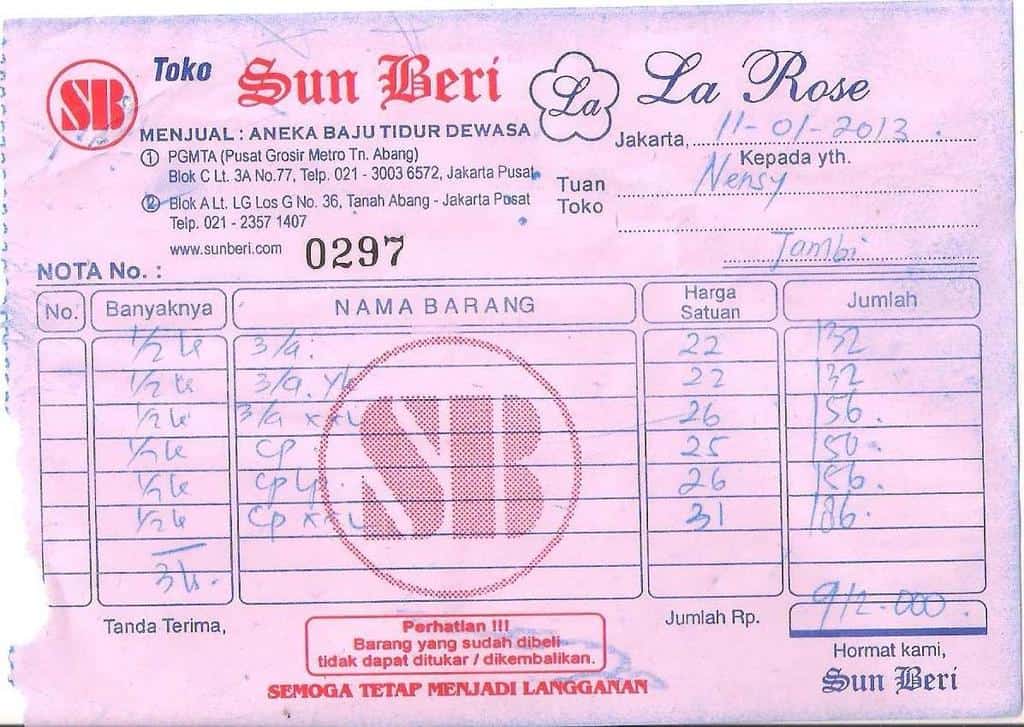 SB Toko Sun Beri La La Rose
MENJUAL : ANEKA BAJU TIDUR DEWASA
Jakarta, 11-01-2013.
① PGMTA (Pusat Grosir Metro Tn. Abang)
Blok C Lt. 3A No.77, Telp. 021 - 3003 6572, Jakarta Pusat
Kepada yth.
Tuan Nensy
Toko
② Blok A Lt. LG Los G No. 36, Tanah Abang - Jakarta Pusat
Telp. 021 - 2357 1407
www.sunberi.com
Jambi
NOTA No. : 0297
No. Banyaknya NAMA BARANG Harga Satuan Jumlah
1/2 3/4. 22 132
1/2 3/4. 22 132
1/2 3/4 26 156.
1/2 cp 25 150.
1/2 cp 26 156.
1/2 cp 31 186.
3
SB
Tanda Terima,
Jumlah Rp. 912.000.
Perhatian !!!
Barang yang sudah dibeli
tidak dapat ditukar / dikembalikan.
SEMOGA TETAP MENJADI LANGGANAN
Hormat kami,
Sun Beri